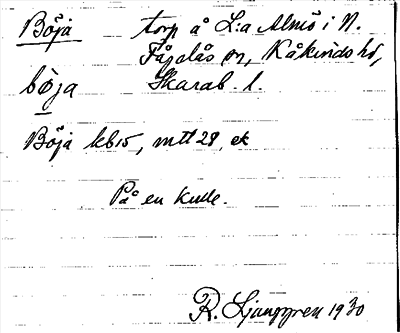 Böja torp å L:a Almö i N.
Fågelås sn, Kåkinds hd,
böja Skarab. l.
Böja kb15, mtl 28, ek
På en kulle.
R. Ljunggren 1930